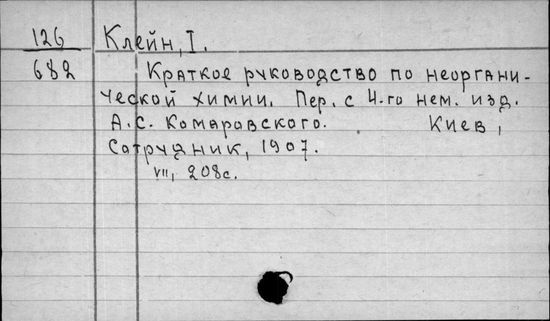 126 Клейн, I.
682 Краткое руководство по неоргани-
ческой химии. Пер. с 4-го нем. изд.
А.С. Комаровского. Киев,
Сотрудник, 1907.
VII, 208с.